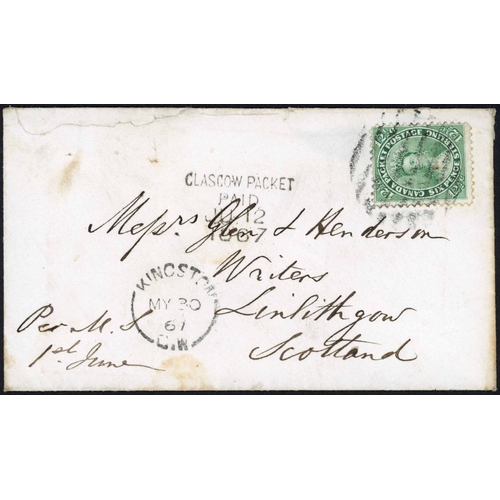 CANADA PACKET POSTAGE
SIX PENCE STERLING
12½ C
GLASGOW PACKET
PAID
JU 12
1867
Messrs Glen & Henderson
Writers
Linlithgow
Scotland
KINGSTON
MY 30
67
C.W
Per M. S.
1st June